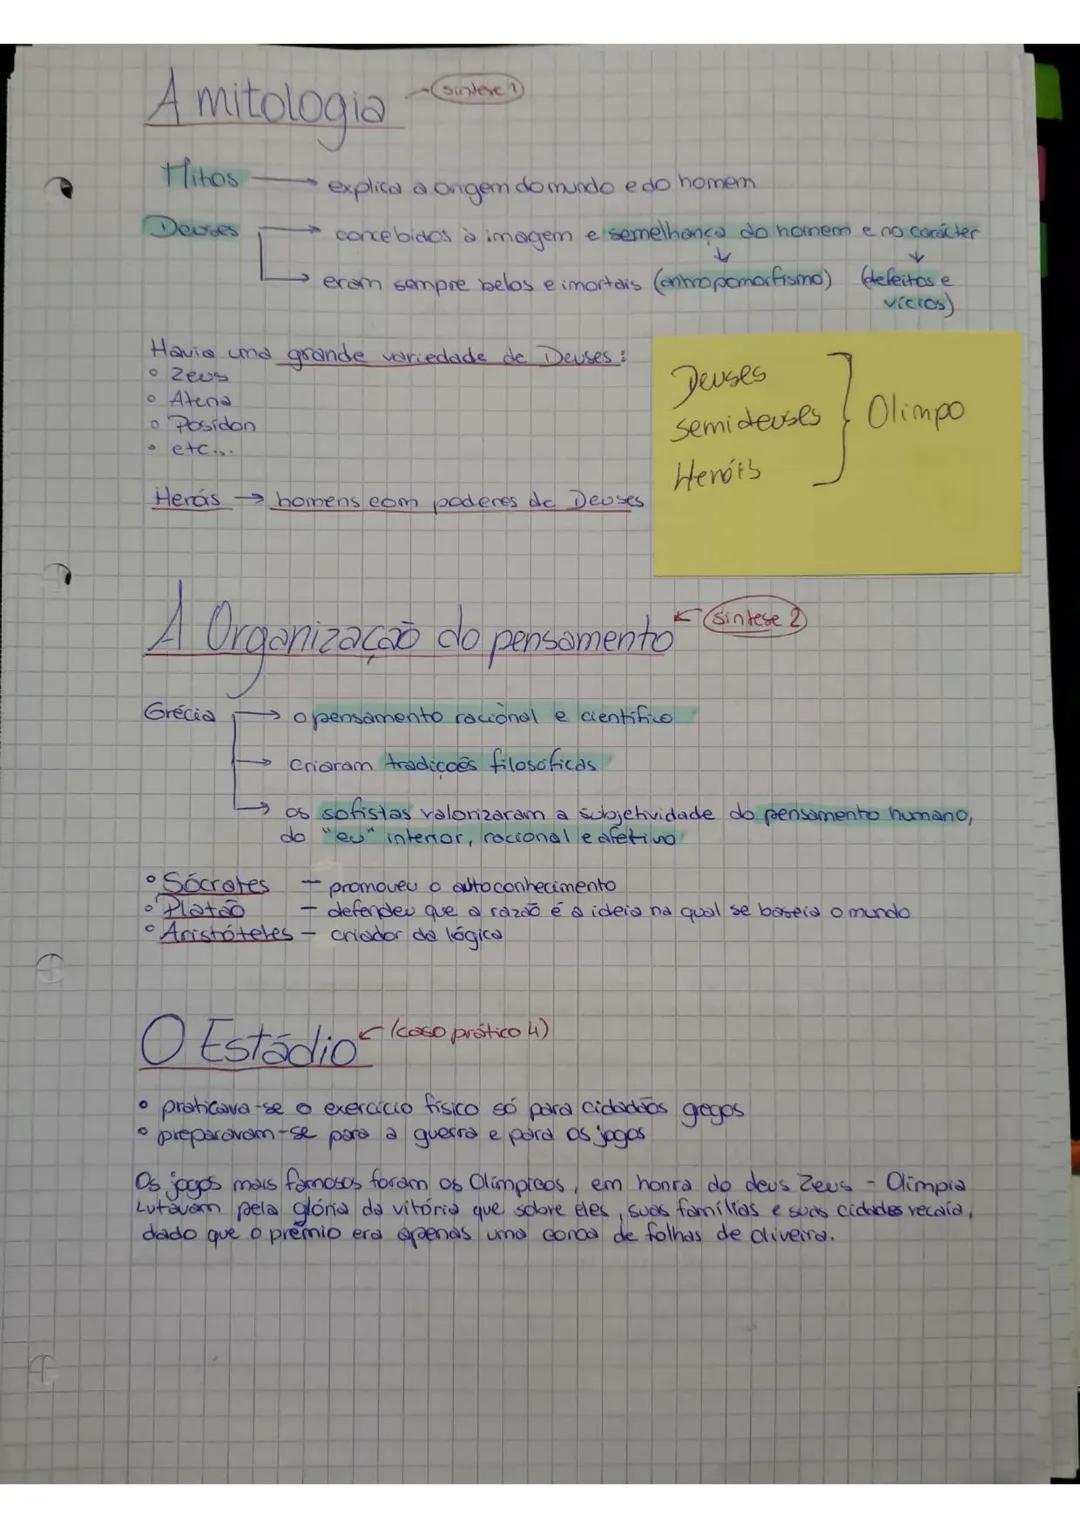 A mitologia
síntese 1
Mitos → explica a origem do mundo e do homem
Deuses → concebidos à imagem e semelhança do homem e no carácter
→ eram sempre belos e imortais (antropomorfismo) (defeitos e
vícios)
Havia uma grande variedade de Deuses:
• Zeus
• Atena
• Posídon
• etc...
Heróis → homens com poderes de Deuses
Deuses
semideuses
Heróis
Olimpo
A Organização do pensamento
síntese 2
Grécia → o pensamento racional e científico
→ criaram tradições filosóficas
→ os sofistas valorizaram a subjetividade do pensamento humano,
do "eu" interior, racional e afetivo
• Sócrates – promoveu o autoconhecimento
• Platão – defendeu que a razão é a ideia na qual se baseia o mundo
• Aristóteles – criador da lógica
O Estádio
(caso prático 4)
• praticava-se o exercício físico só para cidadãos gregos
• preparavam-se para a guerra e para os jogos
Os jogos mais famosos foram os Olímpicos, em honra do deus Zeus - Olímpia
Lutavam pela glória da vitória que sobre eles, suas famílias e suas cidades recaía,
dado que o prémio era apenas uma coroa de folhas de oliveira.